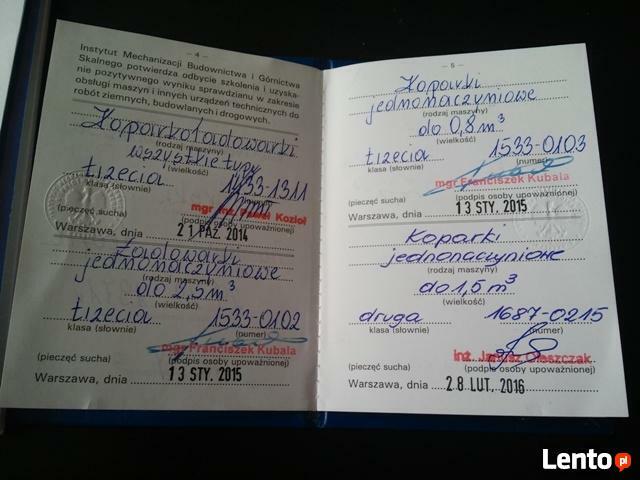 – 4 –
Instytut Mechanizacji Budownictwa i Górnictwa
Skalnego potwierdza odbycie szkolenia i uzyska-
nie pozytywnego wyniku sprawdzianu w zakresie
obsługi maszyn i innych urządzeń technicznych do
robót ziemnych, budowlanych i drogowych.
Koparkoładowarki
(rodzaj maszyny)
wszystkie typy
(wielkość)
trzecia 1433-1311
klasa (słownie) (numer)
mgr inż. Paweł Kozioł
(pieczęć sucha) (podpis osoby upoważnionej)
Warszawa, dnia 21 PAZ. 2014
Ładowarki
jednonaczyniowe
(rodzaj maszyny)
do 2,5m³
(wielkość)
trzecia 1533-0102
klasa (słownie) (numer)
mgr Franciszek Kubala
(pieczęć sucha) (podpis osoby upoważnionej)
Warszawa, dnia 13 STY. 2015
– 5 –
Koparki
jednonaczyniowe
(rodzaj maszyny)
do 0,8m³
(wielkość)
trzecia 1533-0103
klasa (słownie) (numer)
mgr Franciszek Kubala
(pieczęć sucha) (podpis osoby upoważnionej)
Warszawa, dnia 13 STY. 2015
Koparki
jednonaczyniowe
(rodzaj maszyny)
do 1,5m³
(wielkość)
druga 1687-0215
klasa (słownie) (numer)
inż. Janusz Oleszczak
(pieczęć sucha) (podpis osoby upoważnionej)
Warszawa, dnia 28 LUT. 2016
Lento.pl